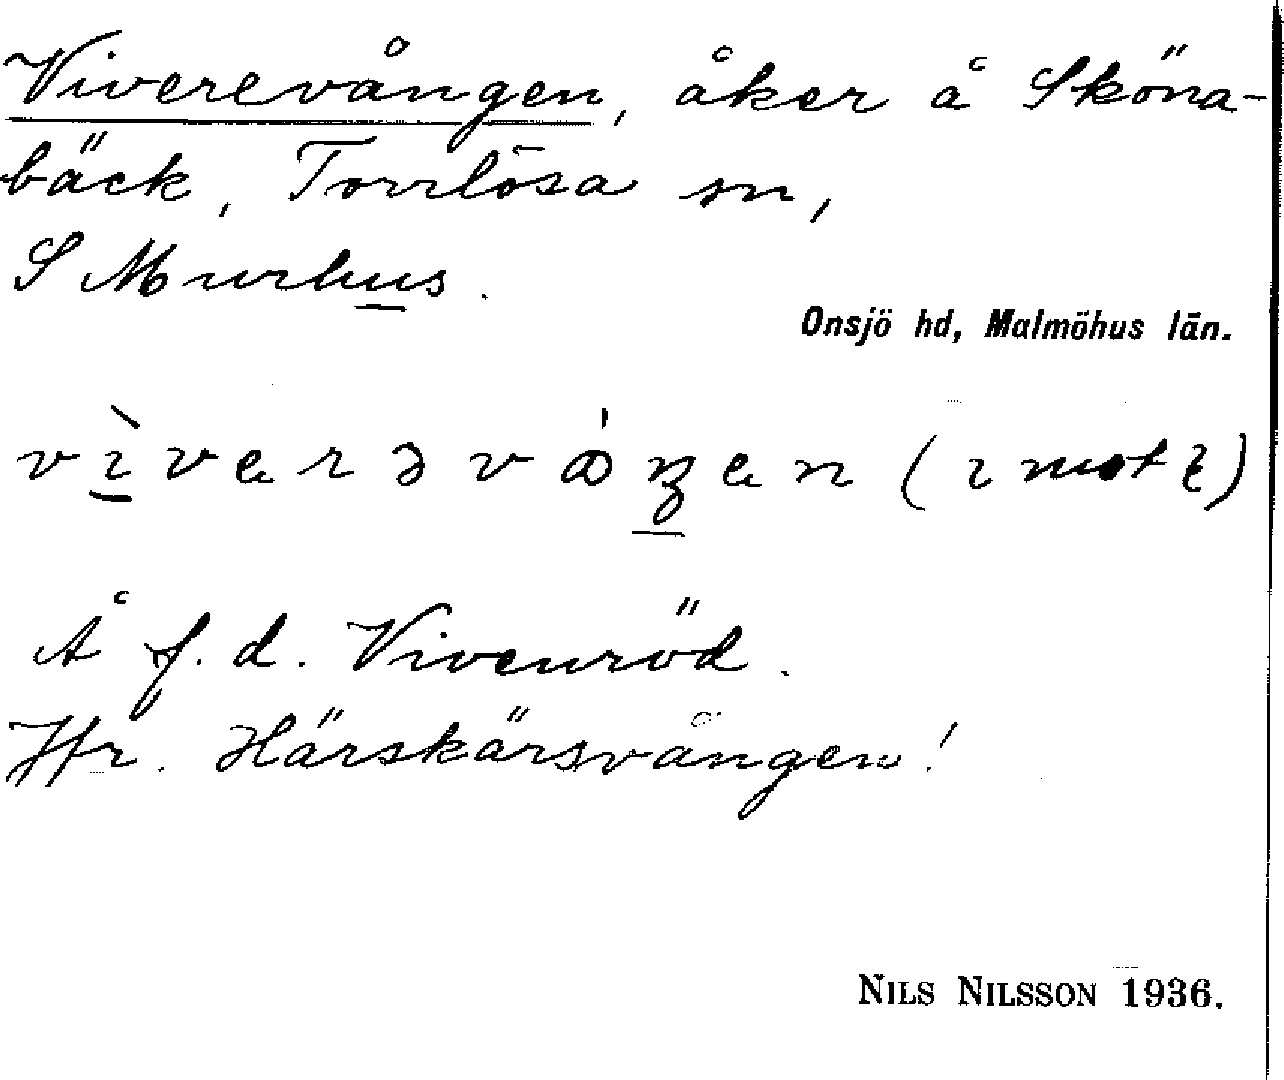 Viverevången, åker å Sköna-
bäck, Torrlösa sn,
S Murhus.
Onsjö hd, Malmöhus län.
(ı mot
Å f. d. Vivenröd.
Jfr. Härskärsvången!
NILS NILSSON 1936.